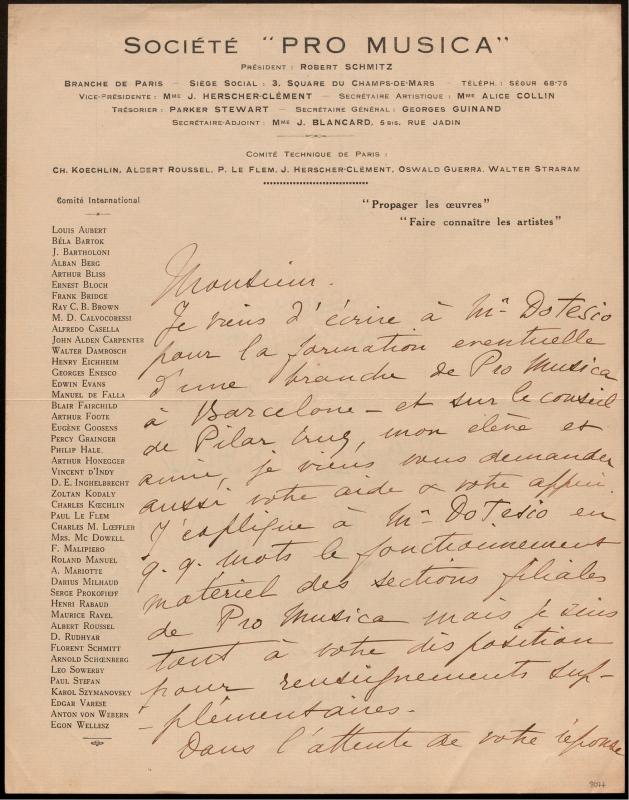 Société "PRO MUSICA"
Président : Robert SCHMITZ
Branche de Paris — Siège Social : 3, Square du Champs-de-Mars — Téléph. : Ségur 68-75
Vice-Présidente : Mme J. HERSCHER-CLÉMENT — Secrétaire Artistique : Mme Alice COLLIN
Trésorier : Parker STEWART — Secrétaire Général : Georges GUINAND
Secrétaire-Adjoint : Mme J. BLANCARD, 5 bis, rue Jadin
Comité Technique de Paris :
Ch. KOECHLIN, Albert ROUSSEL, P. LE FLEM, J. HERSCHER-CLÉMENT, Oswald GUERRA, Walter STRARAM
"Propager les œuvres"
"Faire connaître les artistes"
Comité International
Louis Aubert
Béla Bartok
J. Bartholoni
Alban Berg
Arthur Bliss
Ernest Bloch
Frank Bridge
Ray C. B. Brown
M. D. Calvocoressi
Alfredo Casella
John Alden Carpenter
Walter Damrosch
Henry Eichheim
Georges Enesco
Edwin Evans
Manuel de Falla
Blair Fairchild
Arthur Foote
Eugène Goosens
Percy Grainger
Philip Hale.
Arthur Honegger
Vincent d'Indy
D. E. Inghelbrecht
Zoltan Kodaly
Charles Kœchlin
Paul Le Flem
Charles M. Lœffler
Mrs. Mc Dowell
F. Malipiero
Roland Manuel
A. Mariotte
Darius Milhaud
Serge Prokofieff
Henri Rabaud
Maurice Ravel
Albert Roussel
D. Rudhyar
Florent Schmitt
Arnold Schœnberg
Leo Sowerby
Paul Stefan
Karol Szymanovsky
Edgar Varese
Anton von Webern
Egon Wellesz
Monsieur.
Je viens d'écrire à Mr DoTesio
pour la formation eventuelle
d'une branche de Pro Musica
à Barcelone – et sur le conseil
de Pilar Cruz, mon élève et
amie, je viens vous demander
aussi votre aide & votre appui.
J'explique à Mr DoTesio en
q.q. mots le fonctionnement
matériel des sections filiales
de Pro Musica mais je suis
tout à votre disposition
pour renseignements sup-
-plémentaires.
Dans l'attente de votre réponse